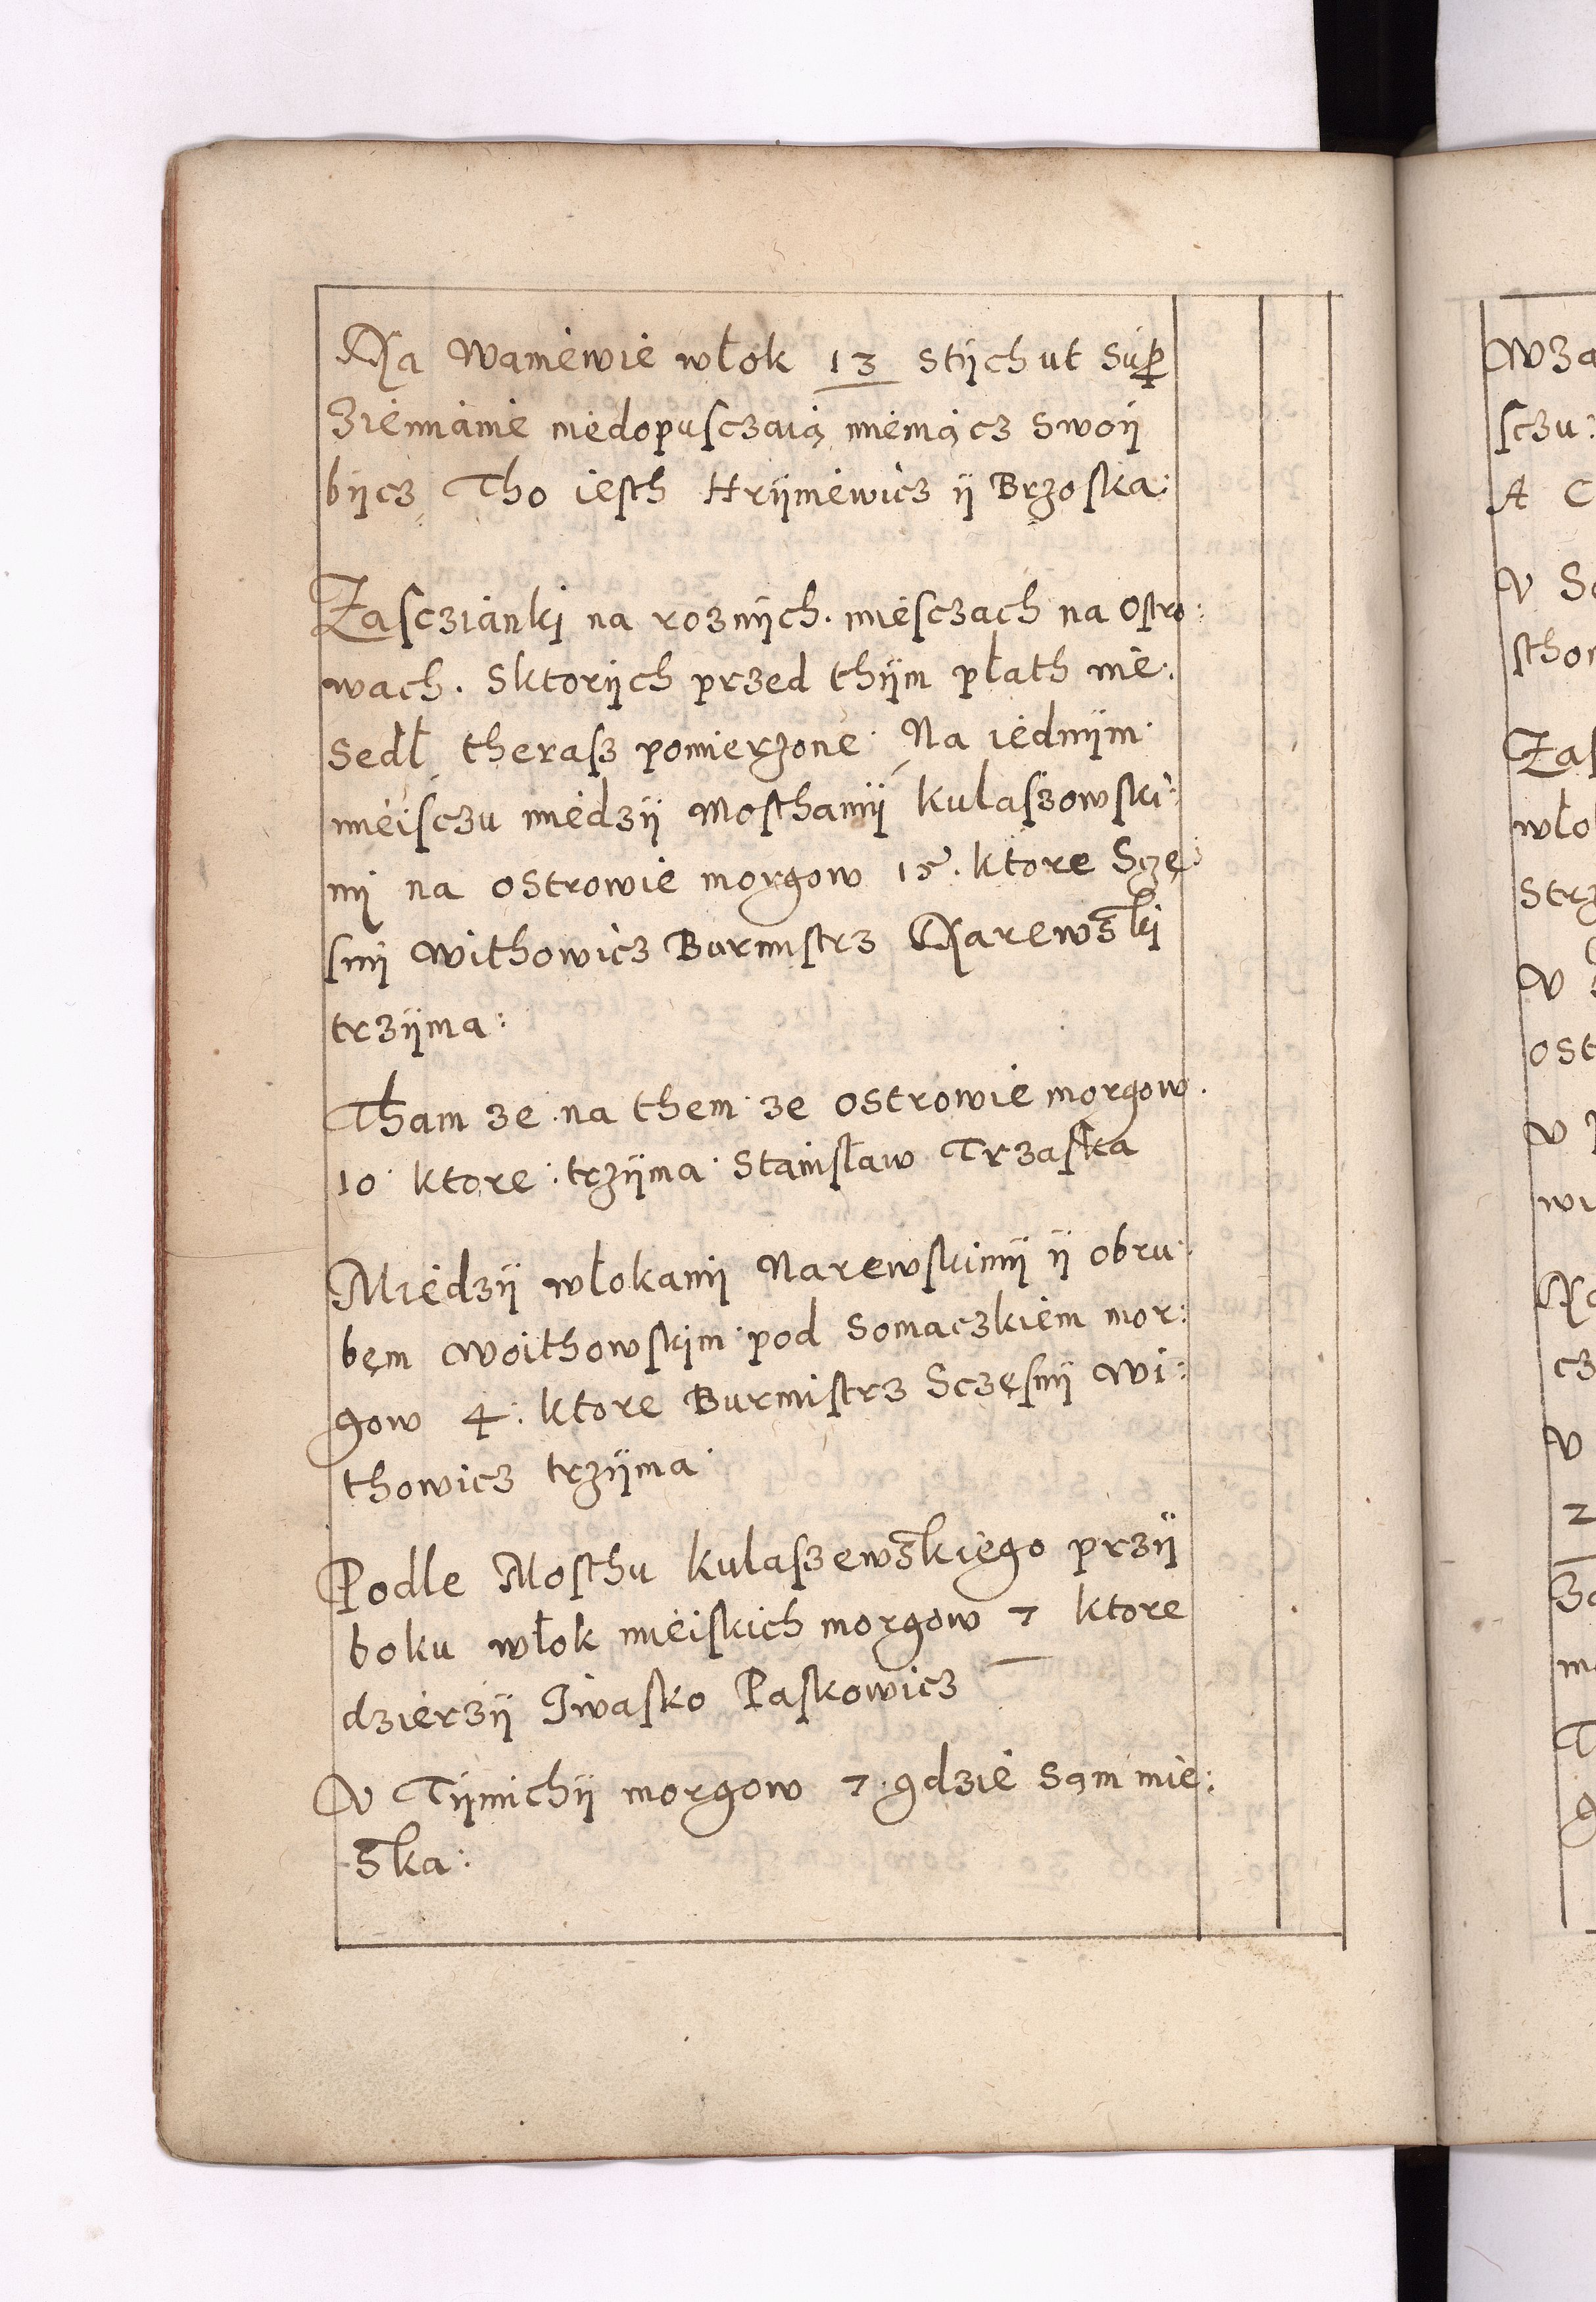 Na Waniewie włok 13 stijch ut Sup
Ziemianie niedopusczaią mieniącz swoij
bijcz Tho iesth Hrijniewicz ij Brzoska:
Zasczianki na roznijch. miesczach na Ostro:
wach. Sktorijch przed thijm płath nie:
Sedł therasz pomierzone Na iednijm
mieisczu miedzij Mosthamij kulaszowski:
mi na ostrowie morgow 15. ktore Szczę:
sni Withowicz Burmistrz Narewski
trzijma:
Tham ze na them ze ostrowie morgow.
10 ktore: trzijma Stanisław Trzaska
Miedzij włokamij Narewskimij ij obru:
bem Woithowskim pod Somaczkiem mor:
gow 4: ktore Burmistrz Sczęsnij Wi:
thowicz trzijma
Podle Mosthu kulaszewskiego przij
boku włok mieiskich morgow 7 ktore
dzierzij Iwasko Paskowicz
V Tijmichij morgow 7. gdzie sam mie:
ska:
Wza
sczu:
A C
V So
sthor
Zas
wło
Strz
V
ost
V
wi
Na
cz
V
2
Za
T